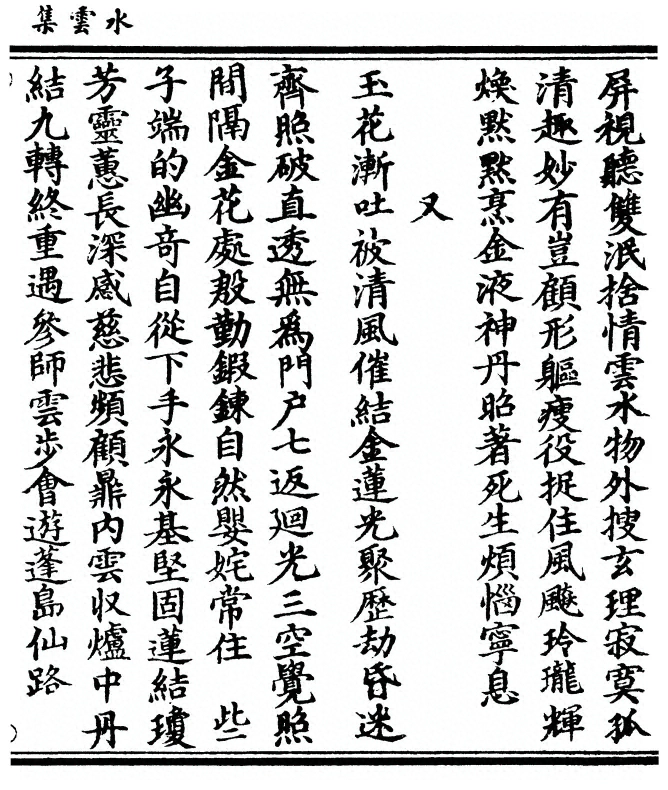 水雲集
屏視聽雙泯捨情雲水物外搜玄理寂寞孤
清趣妙有豈顧形軀瘦役捉住風飈玲瓏輝
煥黙黙烹金液神丹昭著死生煩惱寧息
又
玉花漸吐被清風催結金蓮光聚歷劫昏迷
齊照破直透無爲門户七返廻光三空覺照
間隔金花處殷勤鍜鍊自然嬰姹常住 些
子端的幽竒自從下手永永基堅固蓮結瓊
芳靈蕙長深感慈悲頻顧鼎内雲収爐中丹
結九轉終重遇參師雲步會遊蓬島仙路